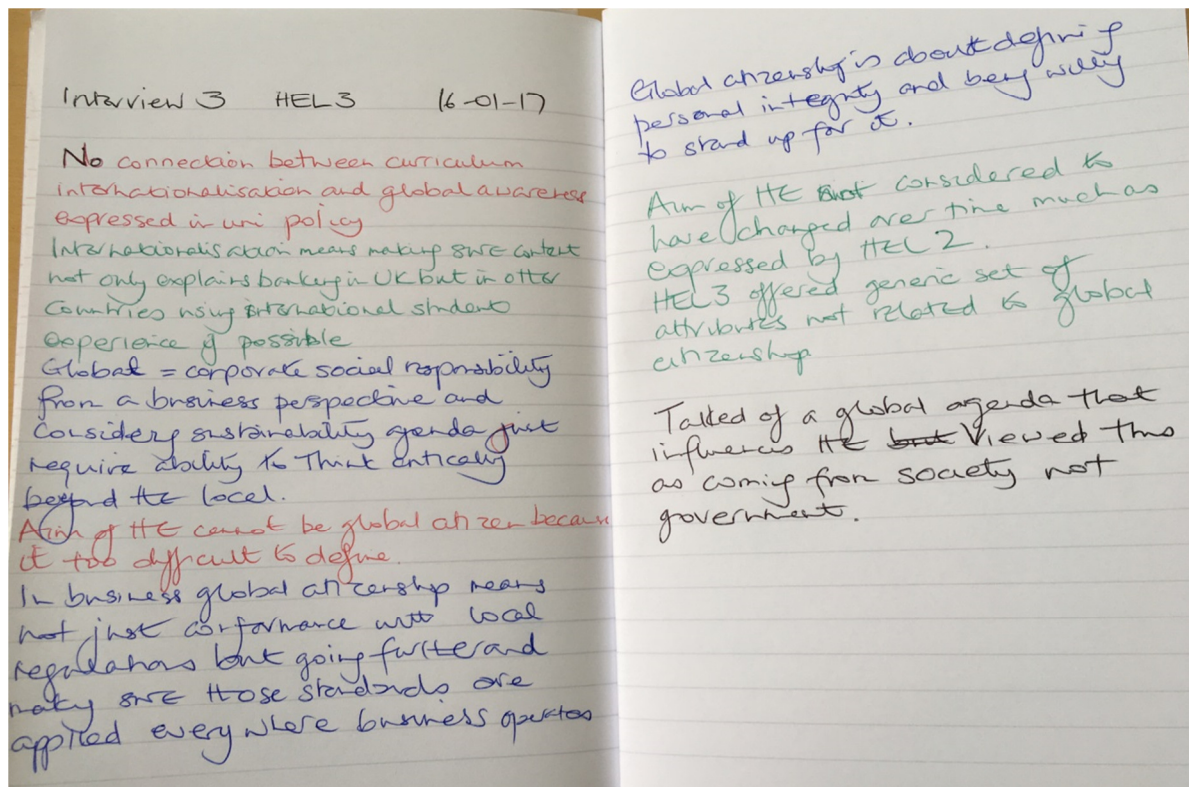 Interview 3 HEL3 16-01-17
No connection between curriculum
internationalisation and global awareness
expressed in uni policy
Internationalisation means making sure content
not only explains banking in UK but in other
countries using international student
experience if possible
Global = corporate social responsibility
from a business perspective and
considers sustainability agenda just
require ability to think critically
beyond the local.
Aim of HE cannot be global citizen because
it too difficult to define.
In business global citizenship means
not just conformance with local
regulations but going further and
making sure those standards are
applied everywhere business operates
Global citizenship is about defining
personal integrity and being willing
to stand up for it.
Aim of HE not considered to
have changed over time much as
expressed by HEL2.
HEL3 offered generic set of
attributes not related to global
citizenship
Talked of a global agenda that
influences HE but viewed this
as coming from society not
government.